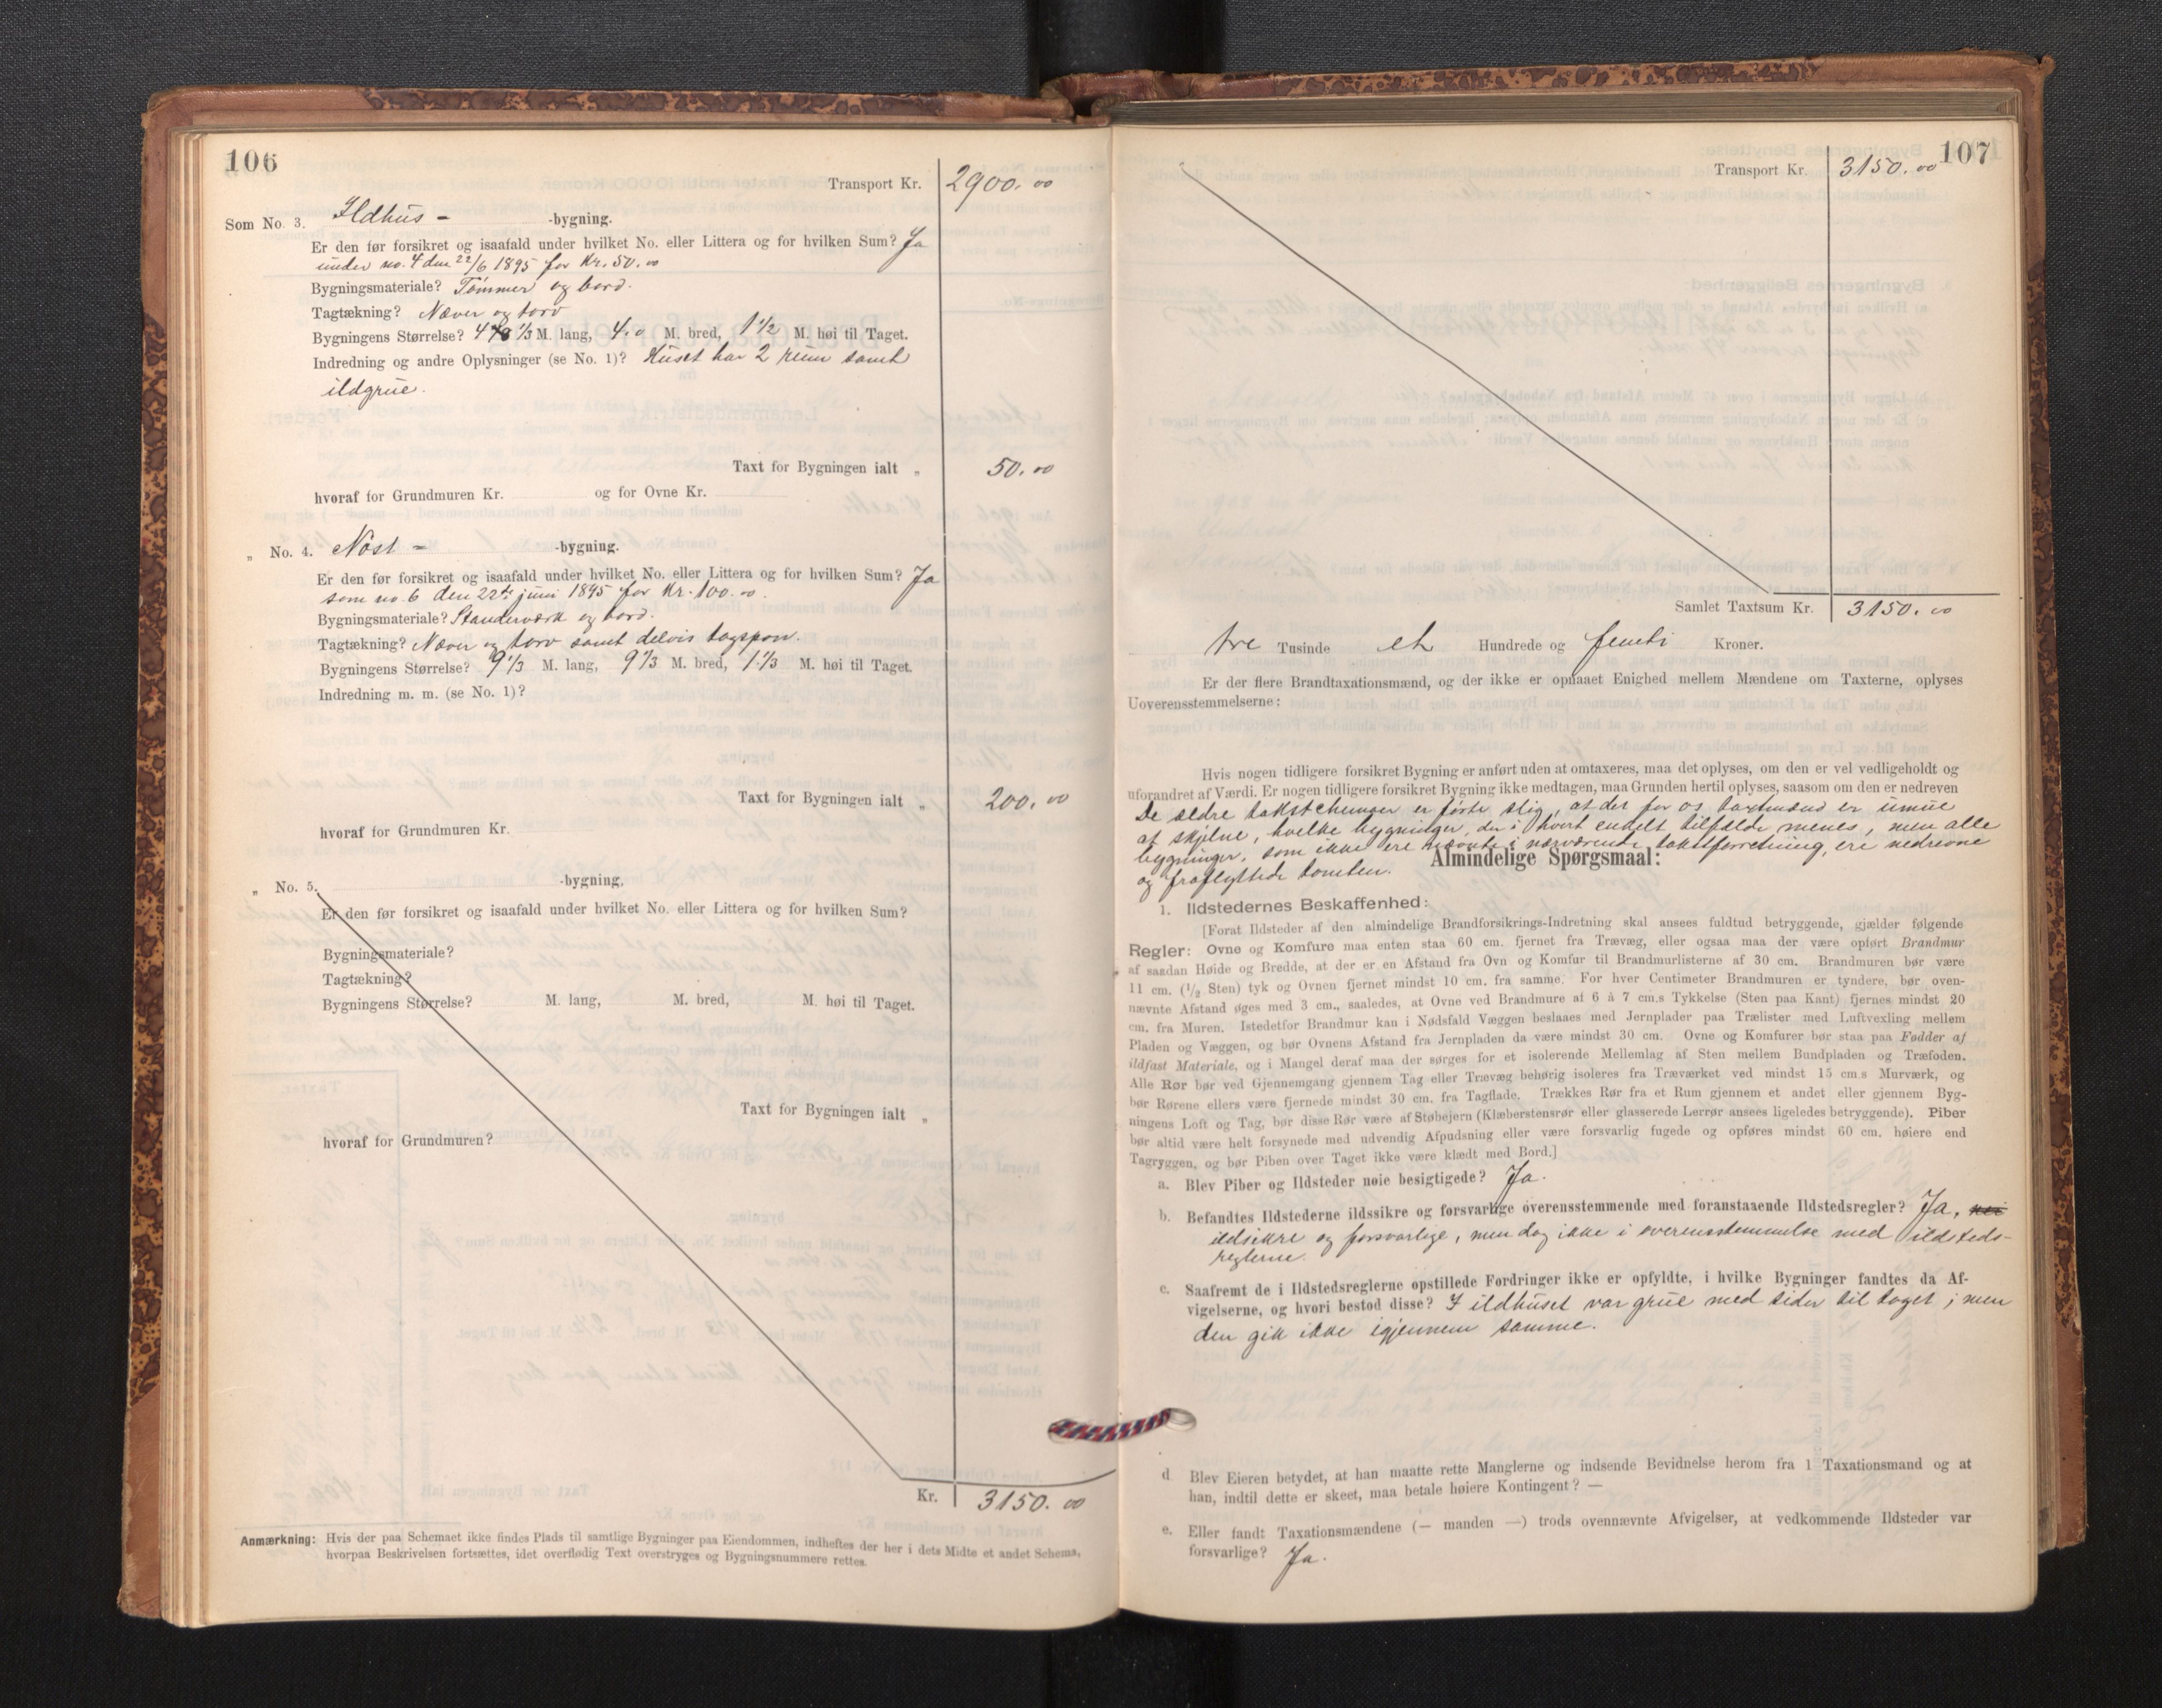 106
Transport Kr. 2900.00
Som No. 3. Ildhus - -bygning.
Er den før forsikret og isaafald under hvilket No. eller Littera og for hvilken Sum? Ja
under no. 4 den 22/6 1895 for Kr. 50.00
Bygningsmateriale? Tømmer og bord.
Tagtækning? Næver og torv
Bygningens Størrelse? 4 1/3 M. lang, 4.0 M. bred, 1 1/2 M. høi til Taget.
Indredning og andre Oplysninger (se No. 1)? Huset har 2 rum samt
ildgrue.
Taxt for Bygningen ialt „ 50.00
hvoraf for Grundmuren Kr. og for Ovne Kr.
„ No. 4. Nøst - -bygning.
Er den før forsikret og isaafald under hvilket No. eller Littera og for hvilken Sum? Ja
som no. 6 den 22de juni 1895 for Kr. 100.00.
Bygningsmateriale? Standerværk og bord.
Tagtækning? Næver og torv samt delvis tagspon.
Bygningens Størrelse? 9 1/3 M. lang, 9 1/3 M. bred, 1 1/3 M. høi til Taget.
Indredning m. m. (se No. 1)?
Taxt for Bygningen ialt „ 200.00
hvoraf for Grundmuren Kr.
„ No. 5. -bygning,
Er den før forsikret og isaafald under hvilket No. eller Littera og for hvilken Sum?
Bygningsmateriale?
Tagtækning?
Bygningens Størrelse? M. lang, M. bred, M. høi til Taget.
Taxt for Bygningen ialt „
hvoraf for Grundmuren?
Kr. 3150.00
Anmærkning: Hvis der paa Schemaet ikke findes Plads til samtlige Bygninger paa Eiendommen, indheftes der her i dets Midte et andet Schema,
hvorpaa Beskrivelsen fortsættes, idet overflødig Text overstryges og Bygningsnummere rettes.
107
Transport Kr. 3150.00
Samlet Taxtsum Kr. 3150.00
tre Tusinde et Hundrede og femti Kroner.
Er der flere Brandtaxationsmænd, og der ikke er opnaaet Enighed mellem Mændene om Taxterne, oplyses
Uoverensstemmelserne:
Hvis nogen tidligere forsikret Bygning er anført uden at omtaxeres, maa det oplyses, om den er vel vedligeholdt og
uforandret af Værdi. Er nogen tidligere forsikret Bygning ikke medtagen, maa Grunden hertil oplyses, saasom om den er nedreven
De ældre takstchemaer er førte slig, at det for os taxtmænd er umue
at skjelne, hvilke bygninger, der i hvert enkelt tilfælde menes, men alle
bygninger, som ikke ere nævnte i nærværende takstforretning, ere nedrevne
og fraflyttede tomten.
Almindelige Spørgsmaal:
1. Ildstedernes Beskaffenhed:
[Forat Ildsteder af den almindelige Brandforsikrings-Indretning skal ansees fuldtud betryggende, gjælder følgende
Regler: Ovne og Komfure maa enten staa 60 cm. fjernet fra Trævæg, eller ogsaa maa der være opført Brandmur
af saadan Høide og Bredde, at der er en Afstand fra Ovn og Komfur til Brandmurlisterne af 30 cm. Brandmuren bør være
11 cm. (1/2 Sten) tyk og Ovnen fjernet mindst 10 cm. fra samme. For hver Centimeter Brandmuren er tyndere, bør oven-
nævnte Afstand øges med 3 cm., saaledes, at Ovne ved Brandmure af 6 à 7 cm.s Tykkelse (Sten paa Kant) fjernes mindst 20
cm. fra Muren. Istedetfor Brandmur kan i Nødsfald Væggen beslaaes med Jernplader paa Trælister med Luftvexling mellem
Pladen og Væggen, og bør Ovnens Afstand fra Jernpladen da være mindst 30 cm. Ovne og Komfurer bør staa paa Fødder af
ildfast Materiale, og i Mangel deraf maa der sørges for et isolerende Mellemlag af Sten mellem Bundpladen og Træfoden.
Alle Rør bør ved Gjennemgang gjennem Tag eller Trævæg behørig isoleres fra Træværket ved mindst 15 cm.s Murværk, og
bør Rørene ellers være fjernede mindst 30 cm. fra Tagflade. Trækkes Rør fra et Rum gjennem et andet eller gjennem Byg-
ningens Loft og Tag, bør disse Rør være af Støbejern (Klæberstensrør eller glasserede Lerrør ansees ligeledes betryggende). Piber
bør altid være helt forsynede med udvendig Afpudsning eller være forsvarlig fugede og opføres mindst 60 cm. høiere end
Tagryggen, og bør Piben over Taget ikke være klædt med Bord.]
a. Blev Piber og Ildsteder nøie besigtigede? Ja.
b. Befandtes Ildstederne ildssikre og forsvarlige overensstemmende med foranstaaende Ildstedsregler? Ja, nei
ildsikre og forsvarlige, men dog ikke i overensstemmelse med ildsteds-
reglerne.
c. Saafremt de i Ildstedsreglerne opstillede Fordringer ikke er opfyldte, i hvilke Bygninger fandtes da Af-
vigelserne, og hvori bestod disse? I ildhuset var grue med sider til taget; men
den gik ikke igjennem samme.
d Blev Eieren betydet, at han maatte rette Manglerne og indsende Bevidnelse herom fra 1 Taxationsmand og at
han, indtil dette er skeet, maa betale høiere Kontingent? —
e. Eller fandt Taxationsmændene (— manden —) trods ovennævnte Afvigelser, at vedkommende Ildsteder var
forsvarlige? Ja.